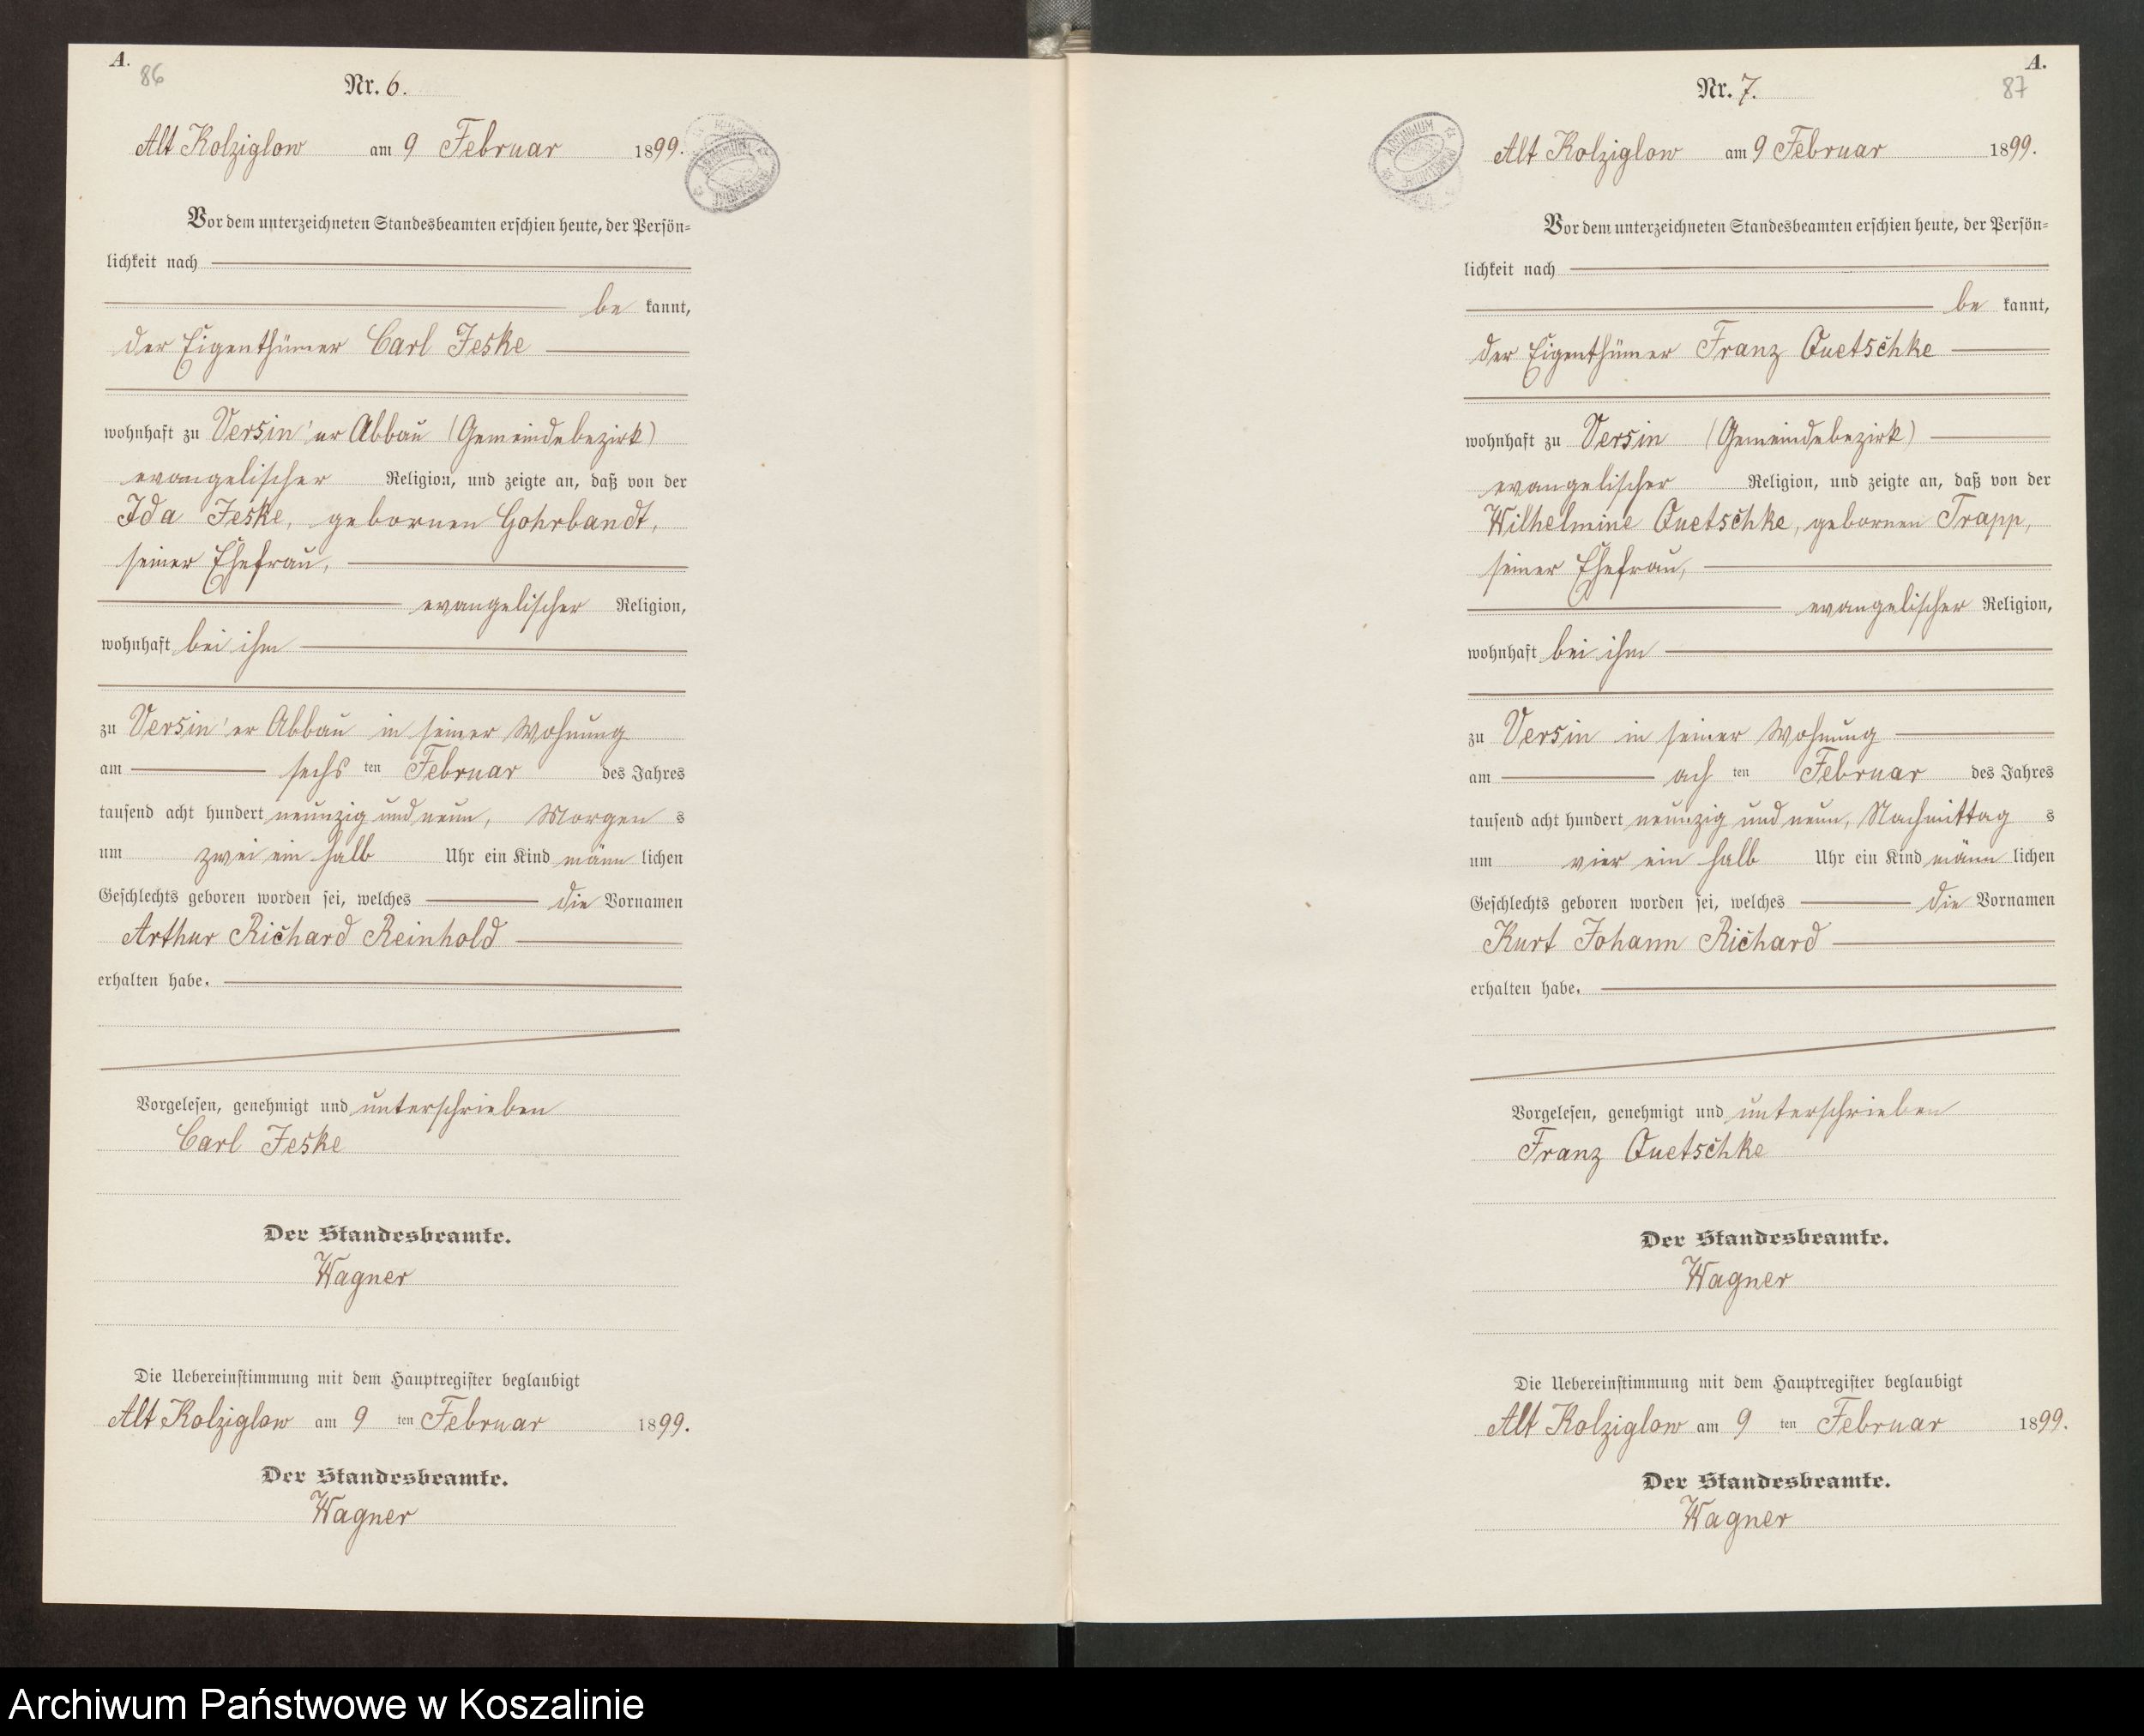 A.
86
Nr. 6.
Alt Kolziglow am 9 Februar 1899.
Vor dem unterzeichneten Standesbeamten erschien heute, der Persön-
lichkeit nach
be kannt,
der Eigenthümer Carl Jeske
wohnhaft zu Versin'er Abbau (Gemeindebezirk)
evangelischer Religion, und zeigte an, daß von der
Ida Jeske, gebornen Gohrbandt,
seiner Ehefrau,
evangelischer Religion,
wohnhaft bei ihm
zu Versin'er Abbau in seiner Wohnung
am sechs ten Februar des Jahres
tausend acht hundert neunzig und neun, Morgen s
um zwei ein halb Uhr ein Kind männ lichen
Geschlechts geboren worden sei, welches die Vornamen
Arthur Richard Reinhold
erhalten habe.
Vorgelesen, genehmigt und unterschrieben
Carl Jeske
Der Standesbeamte.
Wagner
Die Uebereinstimmung mit dem Hauptregister beglaubigt
Alt Kolziglow am 9 ten Februar 1899.
Der Standesbeamte.
Wagner
A.
87
Nr. 7.
Alt Kolziglow am 9 Februar 1899.
Vor dem unterzeichneten Standesbeamten erschien heute, der Persön-
lichkeit nach
be kannt,
der Eigenthümer Franz Quetschke
wohnhaft zu Versin (Gemeindebezirk)
evangelischer Religion, und zeigte an, daß von der
Wilhelmine Quetschke, gebornen Trapp,
seiner Ehefrau,
evangelischer Religion,
wohnhaft bei ihm
zu Versin in seiner Wohnung
am ach ten Februar des Jahres
tausend acht hundert neunzig und neun, Nachmittag s
um vier ein halb Uhr ein Kind männ lichen
Geschlechts geboren worden sei, welches die Vornamen
Kurt Johann Richard
erhalten habe.
Vorgelesen, genehmigt und unterschrieben
Franz Quetschke
Der Standesbeamte.
Wagner
Die Uebereinstimmung mit dem Hauptregister beglaubigt
Alt Kolziglow am 9 ten Februar 1899.
Der Standesbeamte.
Wagner
Archiwum Państwowe w Koszalinie